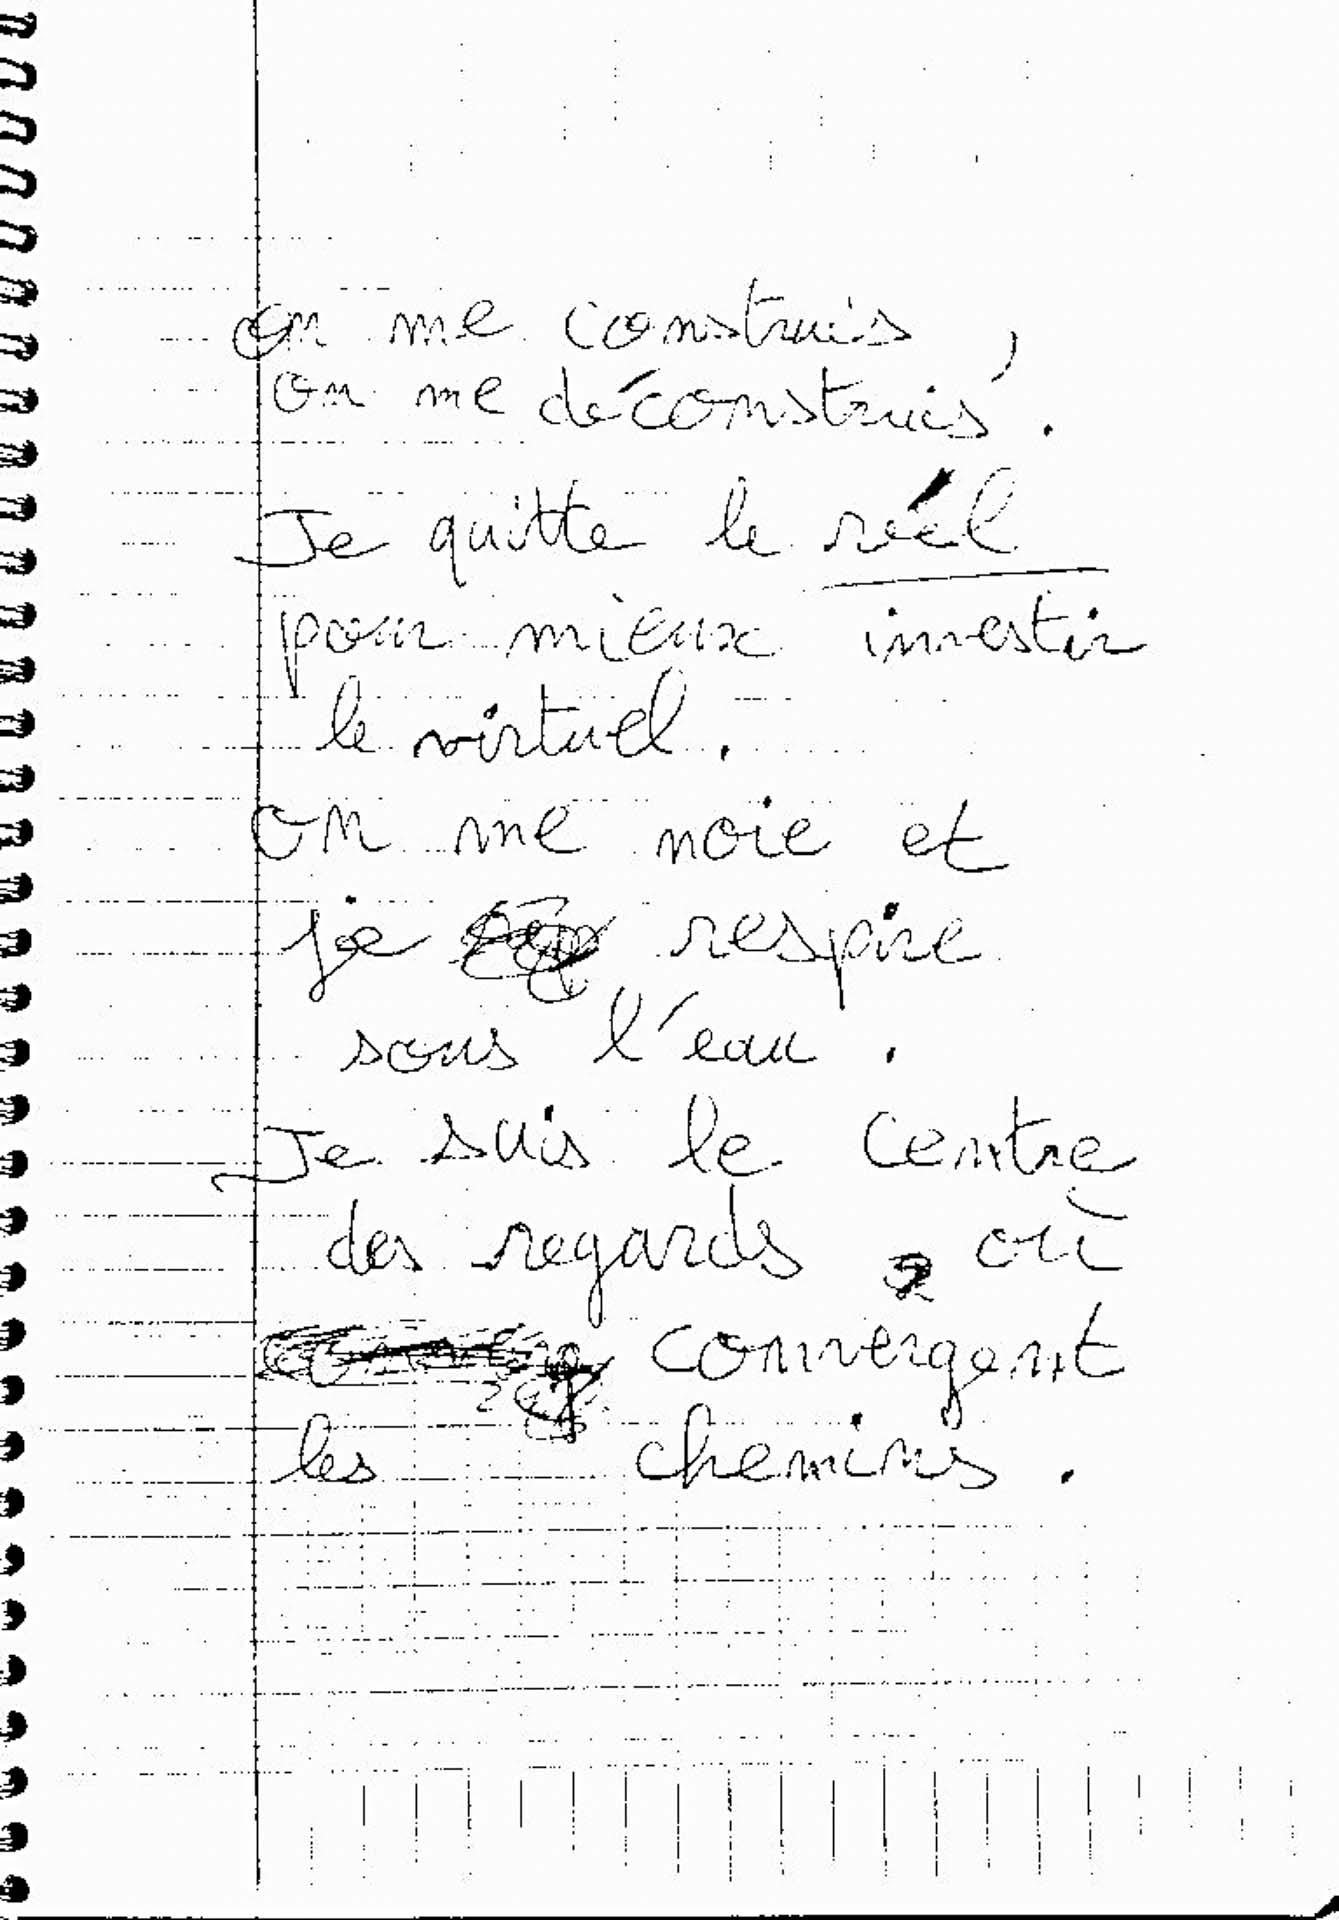 on me construis,
on me déconstruis.
Je quitte le réel
pour mieux investir
le virtuel.
on me noie et
je respire
sous l'eau.
Je suis le centre
des regards, où
convergent
les chemins.